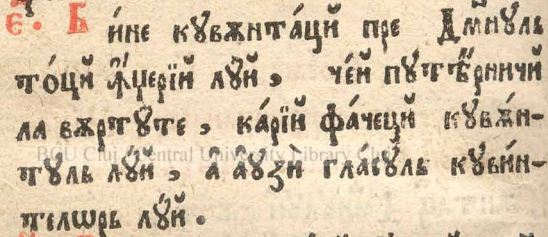 є҃. Бине кꙋвѫнта́цй пре Дм҃нꙋль
то́цй І҆́ꙟцерїй лꙋ́й, че́й пꙋтѣ́рничй
ла вѫртꙋ́те, ка́рїй фа́чецй кꙋвѫ́н-
тꙋль лꙋ́й, а҆ аꙋзѝ гла́сꙋль кꙋви́н-
телѡрь лꙋ́й.
BCU Cluj / Central University Library Cluj